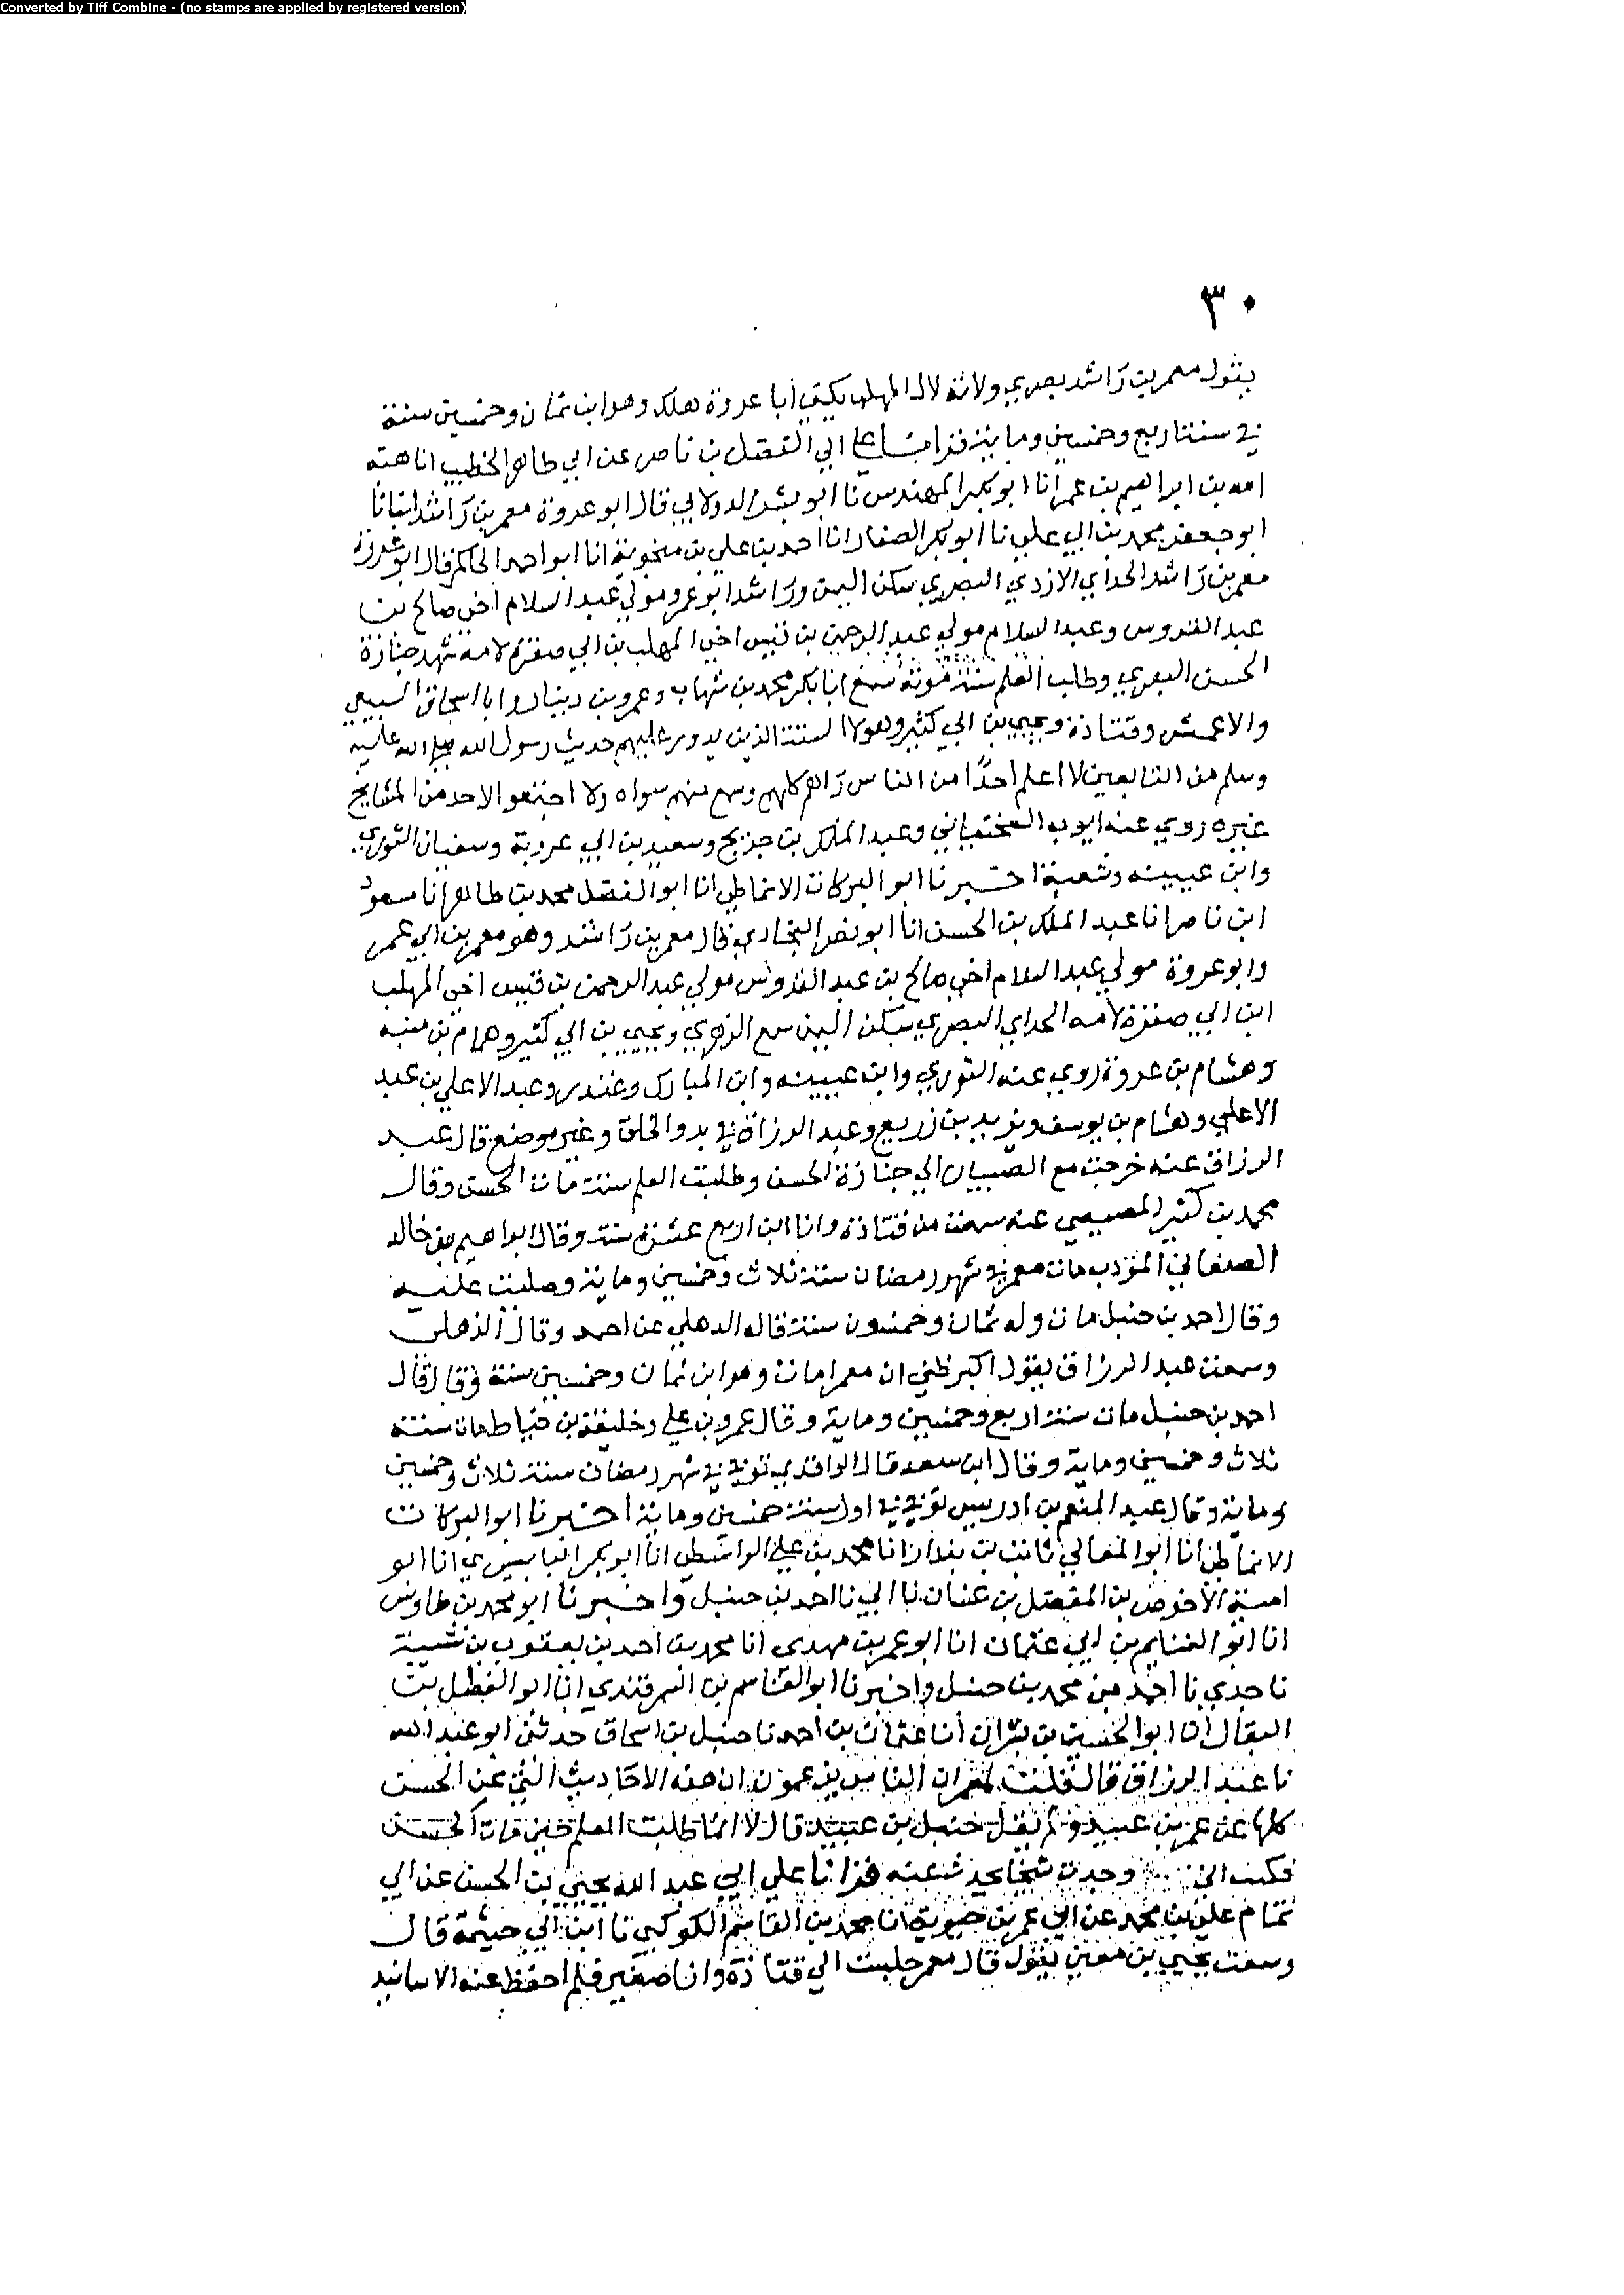 Converted by Tiff Combine - (no stamps are applied by registered version)
٣٠
يقول معمر بن راشد بصري ولاته لال المهلب يكنى أبا عروة هلك وهو ابن ثمان وخمسين سنة
في سنة اربع وخمسين وماية قرانا على ابي الفضل بن ناصر عن ابي طاهر الخطيب انا هبة
الله بن ابراهيم بن عمر انا ابو بكر المهندس نا ابو بشر الدولابي قال ابو عروة معمر بن راشد انبانا
ابو جعفر محمد بن ابي علي نا ابو بكر الصفار انا احمد بن علي بن منجوية انا ابو احمد الحاكم قال ابو عروة
معمر بن راشد الحداي الازدي البصري سكن اليمن وراشد ابو عمرو مولي عبد السلام اخي صالح بن
عبد القدوس وعبد السلام مولي عبد الرحمن بن قيس اخي المهلب بن ابي صفرة لامه شهد جنازة
الحسن البصري وطلب العلم سنة موته سمع ابا بكر محمد بن شهاب وعمرو بن دينار وابا اسحاق السبيعي
والاعمش وقتادة ويحيي بن ابي كثير وهولا الستة الذين يدور عليهم حديث رسول الله صلى الله عليه
وسلم من التابعين لا اعلم احدًا من الناس راهم كلهم وسمع منهم سواه ولا اجتمعوا لاحد من المشايخ
غيره روي عنه ايوب السختياني وعبد الملك بن جريج وسعيد بن ابي عروبة وسفيان الثوري
وابن عيينه وشعبة اخبرنا ابو البركات الانماطي انا ابو الفضل محمد بن طاهر انا مسعود
ابن ناصر انا عبد الملك بن الحسن انا ابو نصر البخاري قال معمر بن راشد وهو معمر بن ابي عمر
وابو عروة مولي عبد السلام اخي صالح بن عبد القدوس مولي عبد الرحمن بن قيس اخي المهلب
ابن ابي صفرة لامه الحداي البصري سكن اليمن سمع الزهري ويحيي بن ابي كثير وهمام بن منبه
وهشام بن عروة روي عنه الثوري وابن عيينه وابن المبارك وغندر وعبد الاعلي بن عبد
الاعلي وهشام بن يوسف ويزيد بن زريع وعبد الرزاق في بدو الخلق وغير موضع قال عبد
الرزاق عنه خرجت مع الصبيان الي جنازة الحسن وطلبت العلم سنة مات الحسن وقال
محمد بن كثير المصيصي عنه سمعت من قتادة وانا ابن اربع عشرة سنة وقال ابراهيم بن خالد
الصنعاني المؤذب مات معمر في شهر رمضان سنة ثلاث وخمسين وماية وصليت عليه
وقال احمد بن حنبل مات وله ثمان وخمسون سنة قاله الدهلي عن احمد وقال الذهلي
وسمعت عبد الرزاق يقول اكبر ظني ان معمرا مات وهو ابن ثمان وخمسين سنة وقال قال
احمد بن حنبل مات سنة اربع وخمسين وماية وقال عمرو بن علي وخليفة بن خياط مات سنة
ثلاث وخمسين وماية وقال ابن سعد قال الواقدي توفي في شهر رمضان سنة ثلاث وخمسين
وماية وقال عبد المنعم بن ادريس توفي في اول سنة خمسين وماية اخبرنا ابو البركات
الانماطي انا ابو المعالي ثابت بن بندار انا محمد بن علي الواسطي انا ابو بكر البابسيري انا ابو
امية الاحوص بن المفضل بن غسان نا ابي نا احمد بن حنبل واخبرنا ابو محمد بن طاوس
انا ابو الغنايم بن ابي عثمان انا ابو عمر بن مهدي انا محمد بن احمد بن يعقوب بن شيبة
نا جدي نا احمد بن محمد بن حنبل واخبرنا ابو القاسم بن السمرقندي انا ابو الفضل بن
البقال انا ابو الحسين بن بشران انا عثمان بن احمد نا حنبل بن اسحاق حدثني ابو عبد الله
نا عبد الرزاق قال قلت لمعمر ان الناس يزعمون ان هذه الاحاديث التي عن الحسن
كلها عن عمر بن عبيد ولم يقل حنبل بن عبيد قال لا انما طلبت العلم حين مات الحسن
فكنت وجدت شيخا يحدث عنه قرانا علي ابي عبد الله يحيي بن الحسن عن ابي
تمام علي بن محمد عن ابي عمر بن حيوية انا محمد بن القاسم الكوكبي نا ابن ابي خيثمة قال
وسمعت يحيي بن معين يقول قال معمر جلست الي قتادة وانا صغير فلم احفظ عنه الاسانيد